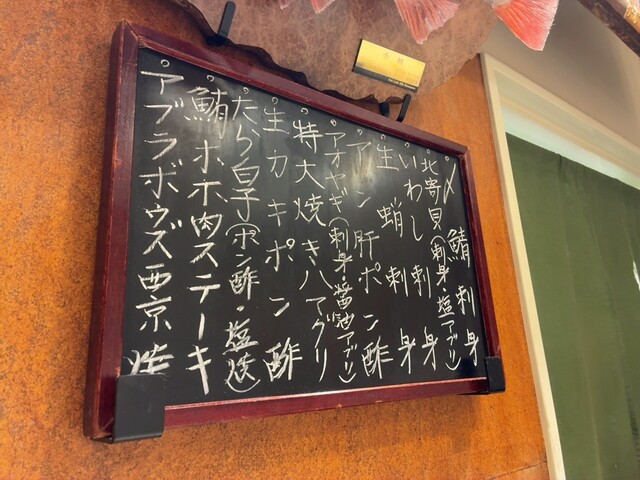 〆鯖刺身
北寄貝(刺身・塩アブリ)
いわし刺身
生蛸刺身
アン肝ポン酢
アオヤギ(刺身・醤油アブリ)
特大焼きハマグリ
生カキポン酢
たら白子(ポン酢・塩焼)
鮪ホホ肉ステーキ
アブラボウズ西京焼